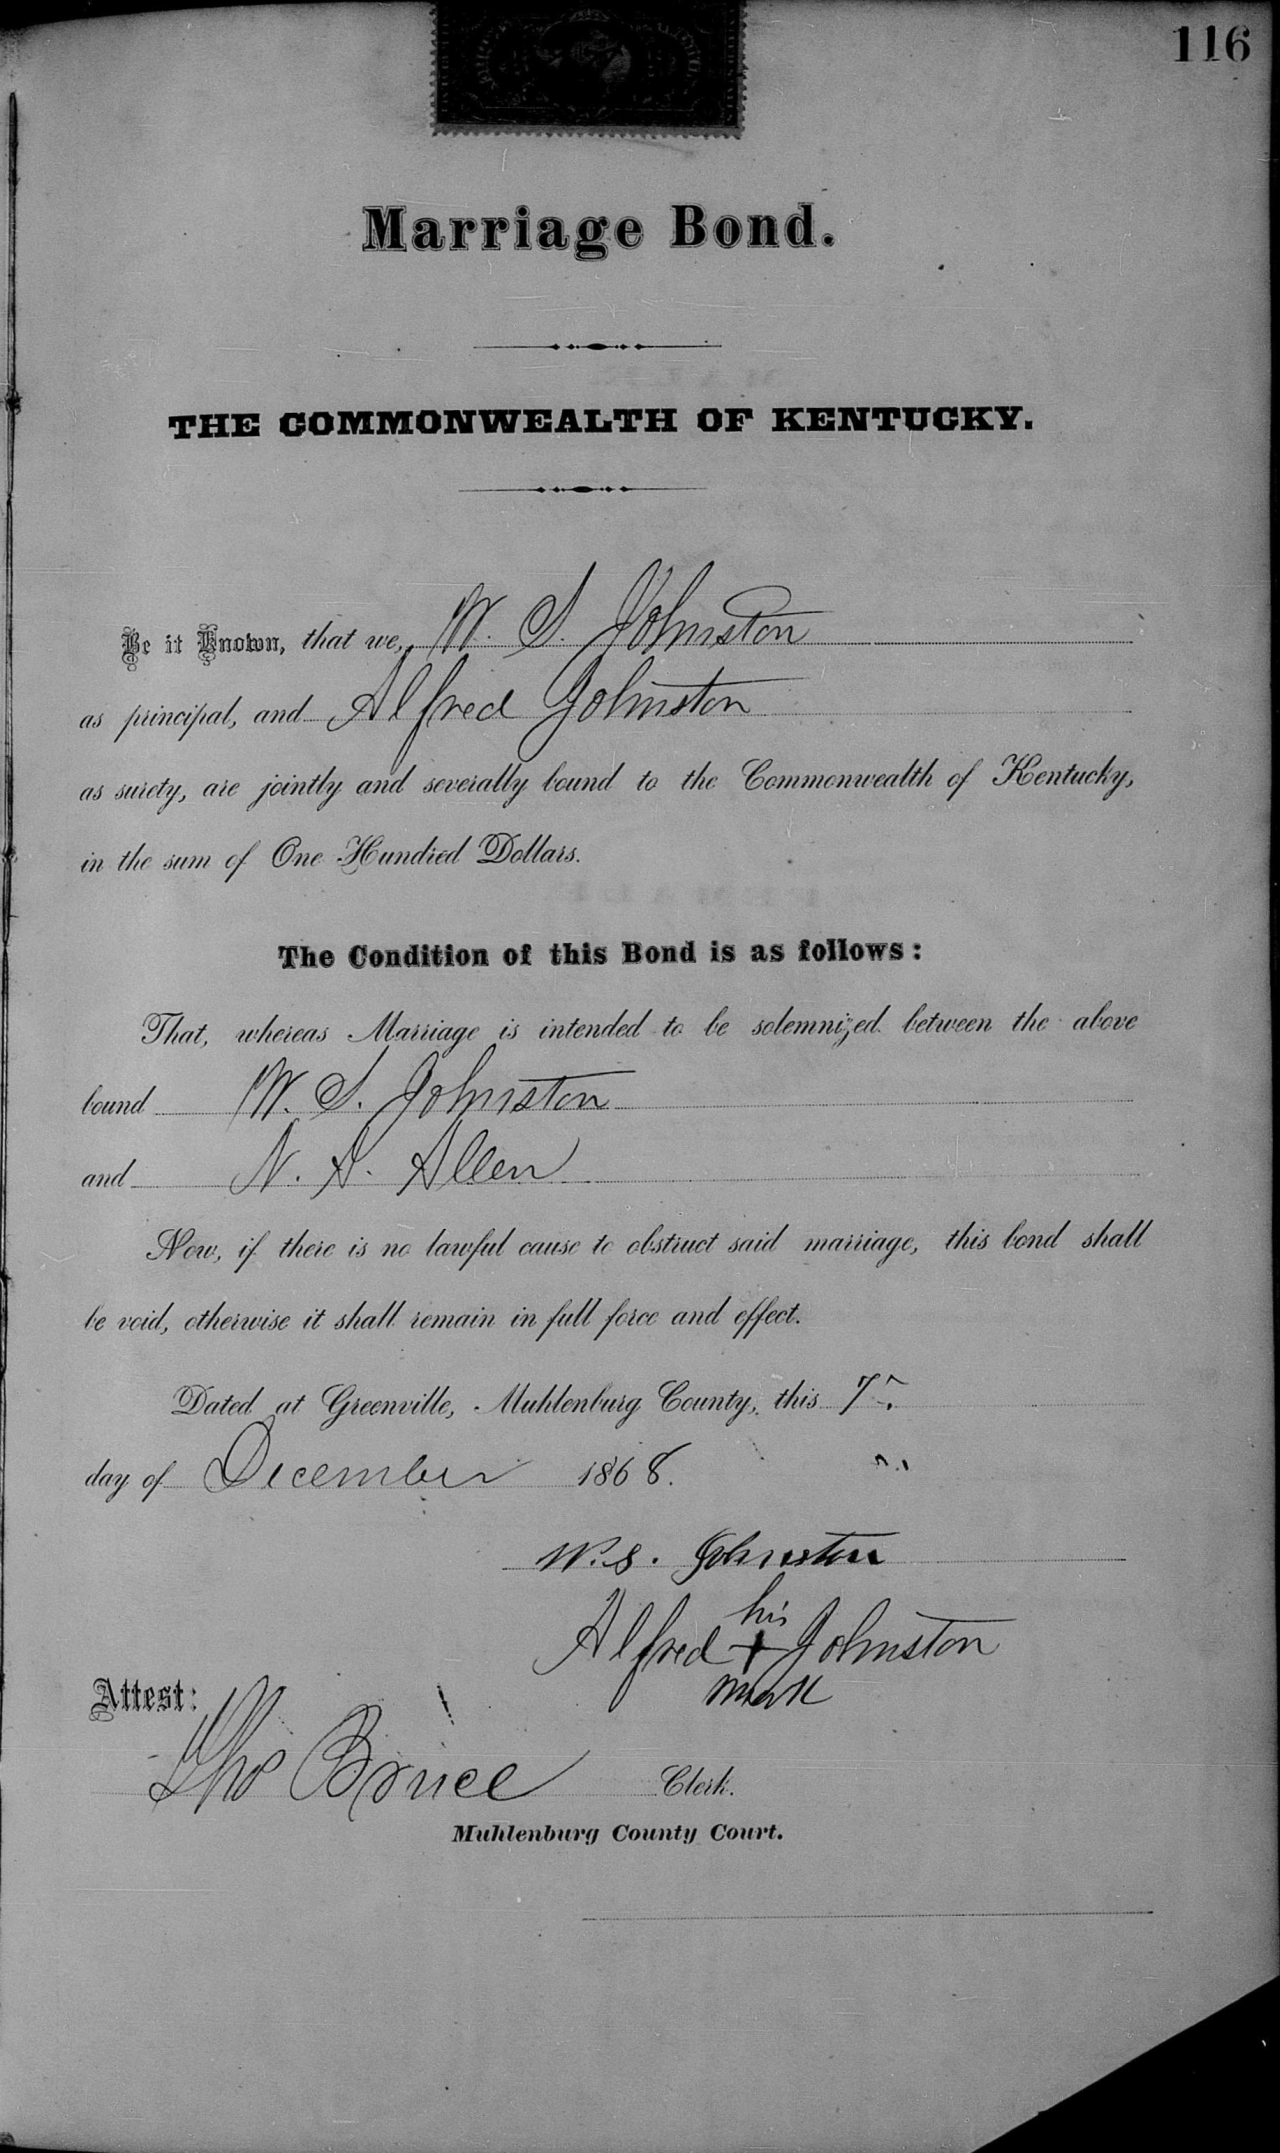 116
Marriage Bond.
THE COMMONWEALTH OF KENTUCKY.
Be it Known, that we, W. S. Johnston
as principal, and Alfred Johnston
as surety, are jointly and severally bound to the Commonwealth of Kentucky,
in the sum of One Hundred Dollars.
The Condition of this Bond is as follows:
That, whereas Marriage is intended to be solemnized between the above
bound W. S. Johnston
and N. A. Allen
Now, if there is no lawful cause to obstruct said marriage, this bond shall
be void, otherwise it shall remain in full force and effect.
Dated at Greenville, Muhlenburg County, this 7
day of December 1868.
W. S. Johnston
his
Alfred + Johnston
mark
Attest:
Tho Bruce Clerk.
Muhlenburg County Court.